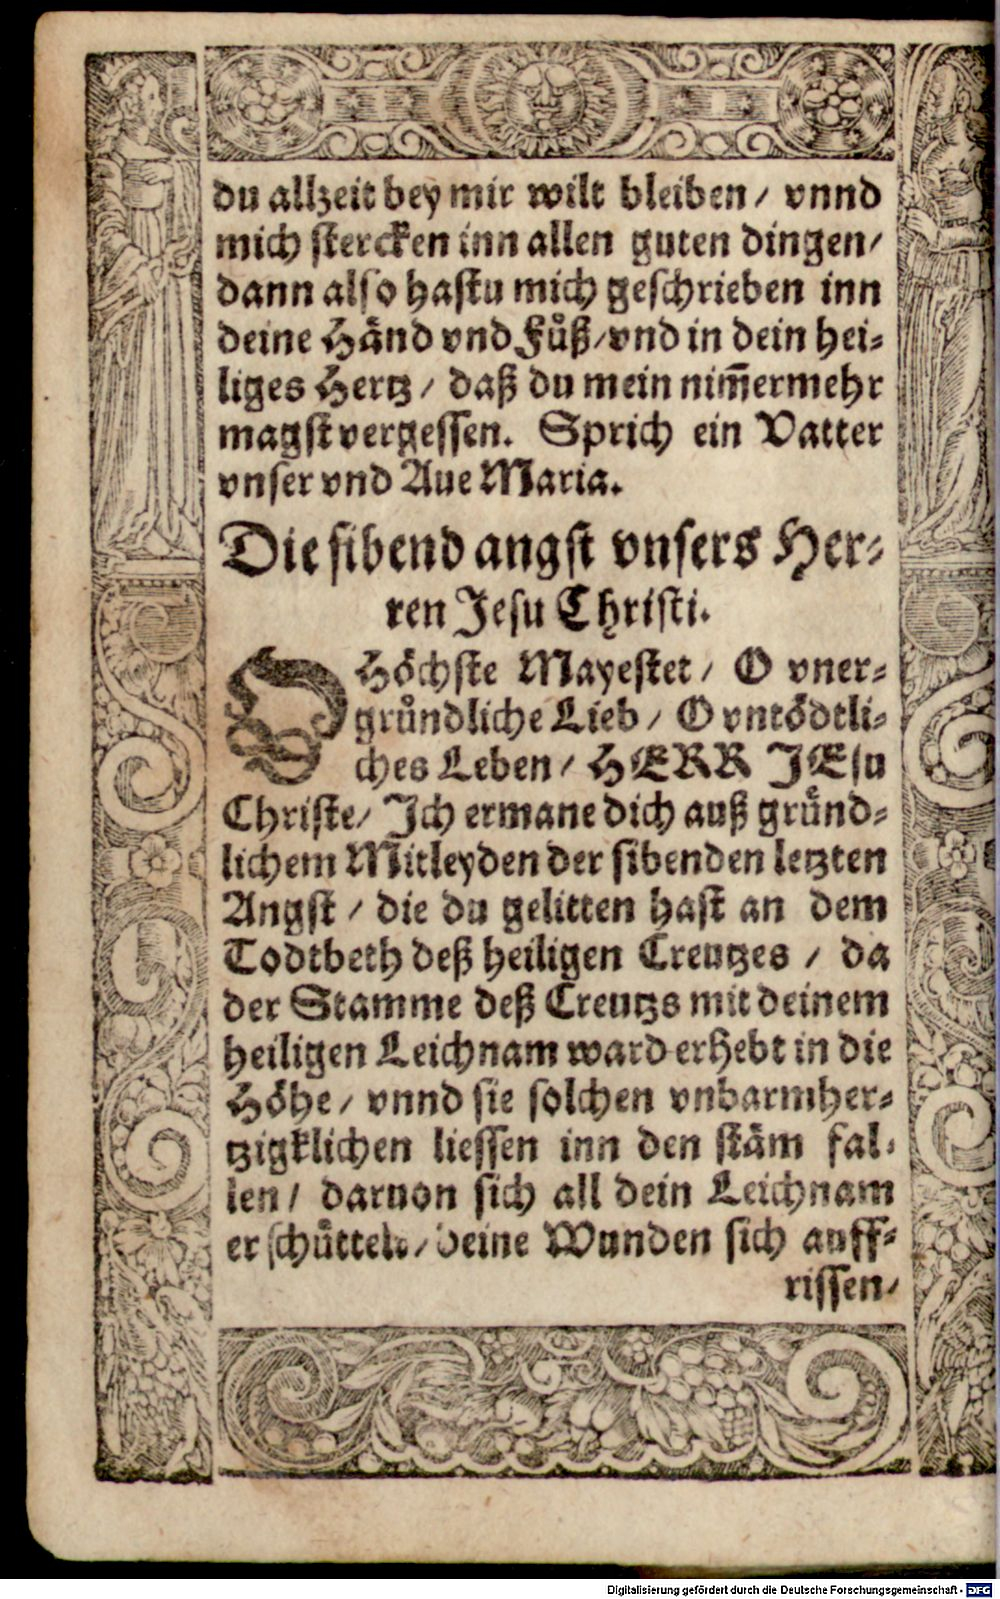 du allzeit bey mir wilt bleiben / vnnd
mich stercken inn allen guten dingen/
dann also hastu mich geschrieben inn
deine Händ vnd Fuͤß/vnd in dein hei⸗
liges Hertz / daß du mein nim̄ermehr
magst vergessen. Sprich ein Vatter
vnser vnd Aue Maria.
Die sibend angst vnsers Her⸗
ren Jesu Christi.
O Höchste Mayestet / O vner⸗
gruͤndliche Lieb / O vntödtli⸗
ches Leben / HERR JEsu
Christe/ Ich ermane dich auß gruͤnd⸗
lichem Mitleyden der sibenden letzten
Angst / die du gelitten hast an dem
Todtbeth deß heiligen Creutzes / da
der Stamme deß Creutzs mit deinem
heiligen Leichnam ward erhebt in die
Höhe / vnnd sie solchen vnbarmher⸗
tzigklichen liessen inn den stäm fal⸗
len / daruon sich all dein Leichnam
erschuͤttelt / deine Wunden sich auff⸗
rissen/
Digitalisierung gefördert durch die Deutsche Forschungsgemeinschaft - DFG